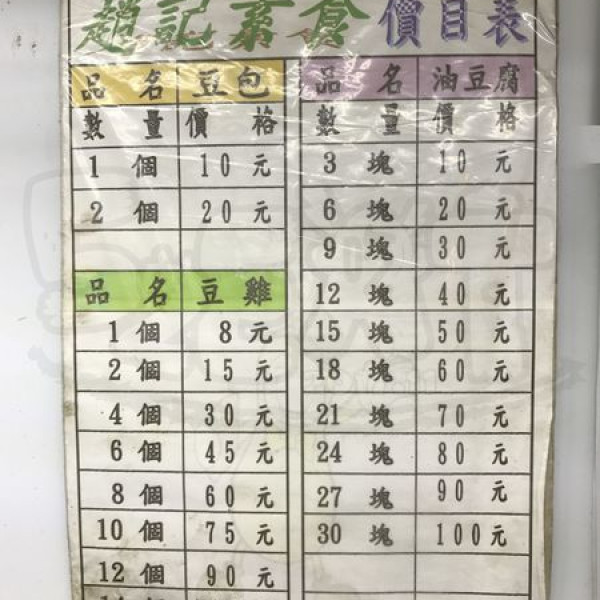 趙記素食 價目表
品名 豆包
數量 價格
1個 10元
2個 20元
品名 豆雞
1個 8元
2個 15元
4個 30元
6個 45元
8個 60元
10個 75元
12個 90元
品名 油豆腐
數量 價格
3塊 10元
6塊 20元
9塊 30元
12塊 40元
15塊 50元
18塊 60元
21塊 70元
24塊 80元
27塊 90元
30塊 100元